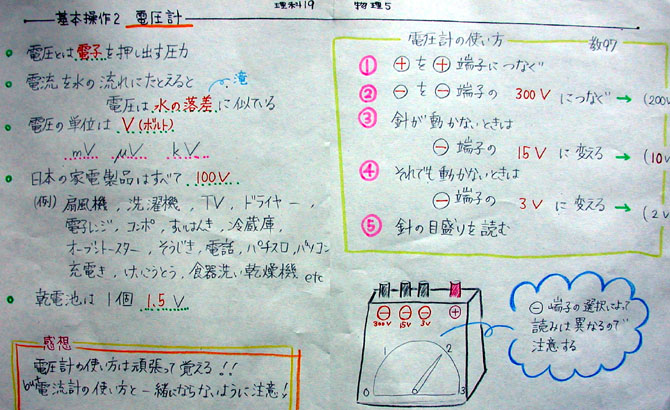 理科19 物理5
基本操作2 電圧計
電圧とは電子を押し出す圧力
電流を水の流れにたとえると
滝
電圧は水の落差に似ている
電圧の単位は V(ボルト)
mV μV kV
日本の家電製品はすべて 100V
(例) 扇風機、洗濯機、TV、ドライヤー、
電子レンジ、コンポ、すいはんき、冷蔵庫、
オーブントースター、そうじき、電話、パチスロ、パソコン
充電き、けいこうとう、食器洗い乾燥機 etc
乾電池は1個 1.5V
感想
電圧計の使い方は頑張って覚える!!
but 電流計の使い方と一緒にならないように注意!
電圧計の使い方 教97
① ⊕を⊕端子につなぐ
② ⊖を⊖端子の 300Vにつなぐ → (200V
③ 針が動かないときは
⊖端子の 15Vに変える → (10V
④ それでも動かないときは
⊖端子の 3Vに変える → (2V
⑤ 針の目盛りを読む
⊖ ⊖ ⊖ ⊕
300V 15V 3V
0 1 2 3
⊖端子の選択によって
読みは異なるので
注意する